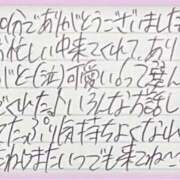 0分でありがとうございました
お忙しい中来てくれてあり
がと(泣)可愛いって褒ん
でくれたよいろんなお話し
てたっぷり気持ちよくなれ
たわまたいつでも来てね〜